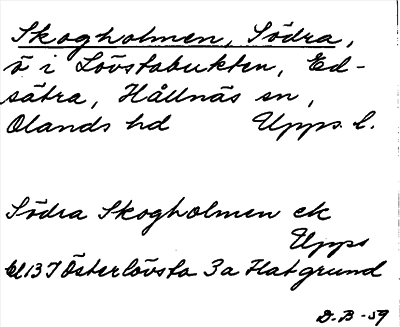 Skogholmen, Södra,
ö i Lövstabukten, Ed-
sätra, Hållnäs sn,
Olands hd Upps. l.
Södra Skogholmen ek
Upps
bl 137 Österlövsta 3a Hatgrund
D.B-59